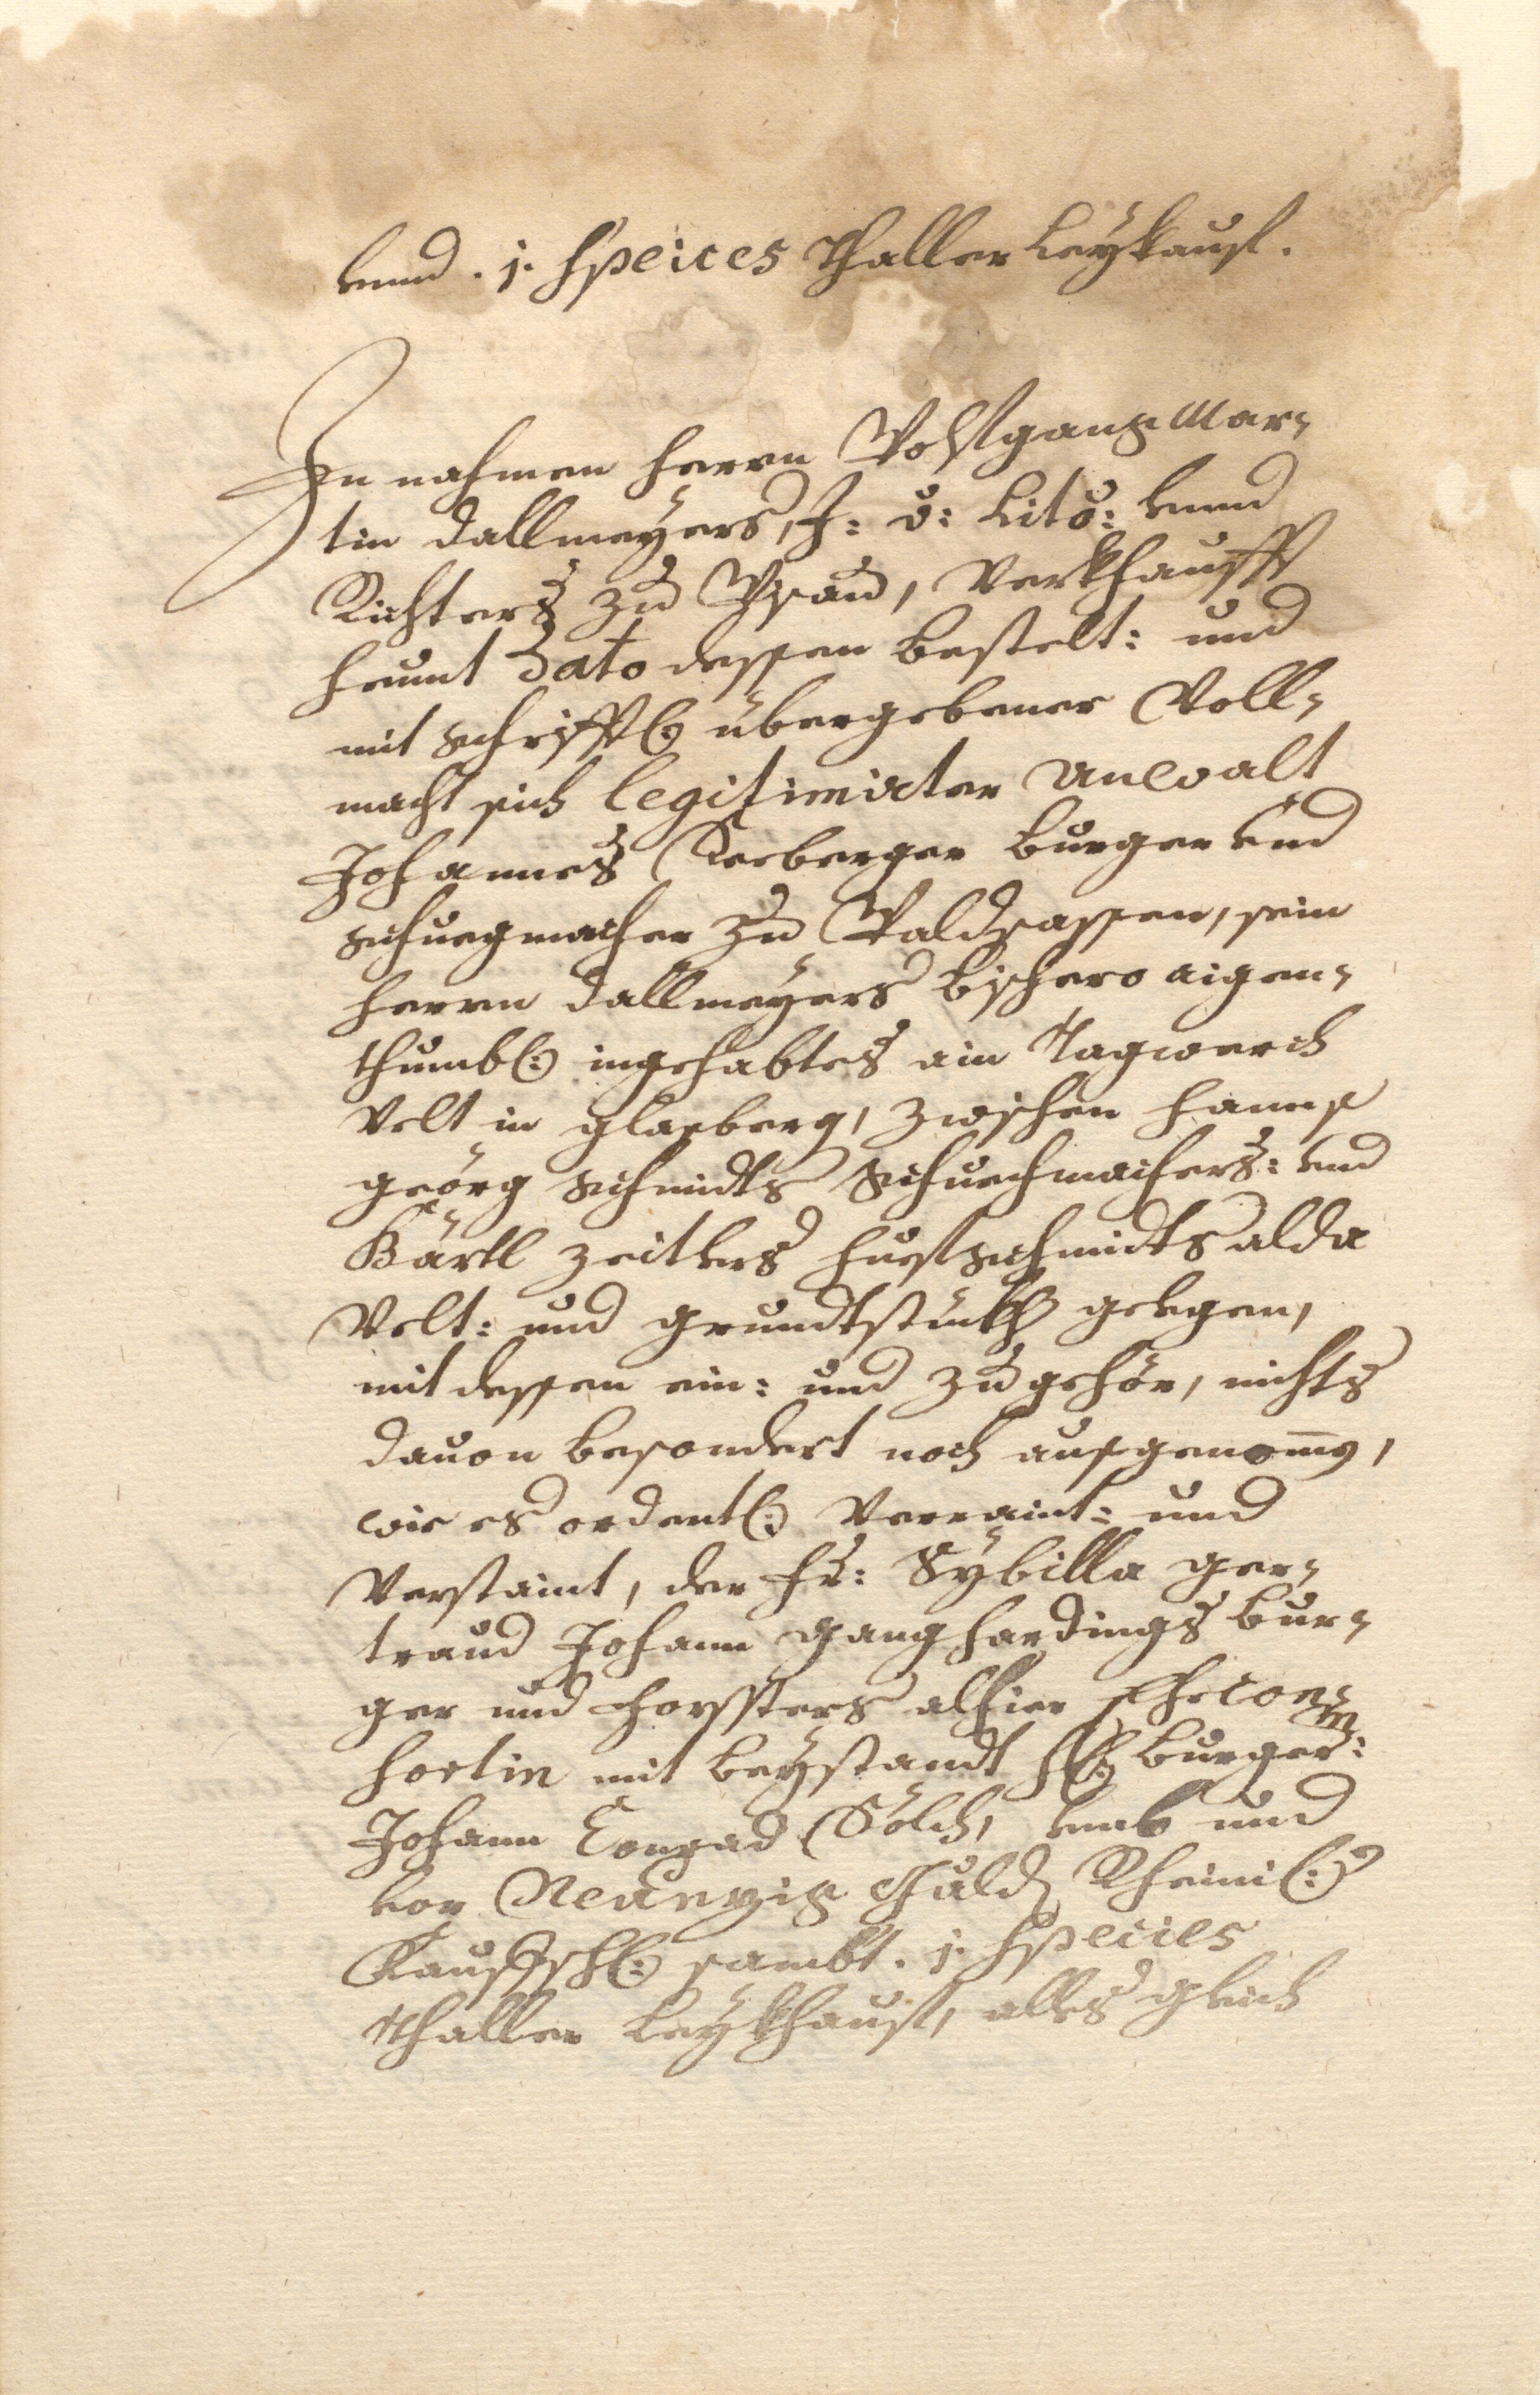 vnnd . j. Speices Thaller Leykauf.
In nahmen herrn Wolfgang Mar¬
tin Dallmeÿers, J: V: Lito: vnnd
Richters zu , Verkhaufft
heunt Dato dessen bestelt: und
mit schrifftl: übergebener Voll¬
macht sich legitimirter Anwalt
Johannes Seeberger burger vnd
schuegmacher zu Waldsassen, sein
herrn Dallmeÿers bishero aigen¬
thumbl: ingehabtes ain Tagwerch
Velt in glasberg, zwischen hanns
geörg Schmidts Schuechmachers: vnd
Bärtl Zeitlers huefschmidts alda
Velt: und grundtstückh gelegen,
mit dessen ein: und zugehör, nichts
dauon besondert noch ausgenom̄en,
wie es ordentl: Verraint: und
Verstaint, der Fr: Sÿbilla ger¬
traud Johann Ganghardings bur¬
ger und forssters alhier Ehecon¬
sortin mit beÿstandt burgerm:
Johann Conrad Sölch, vmb und
vor Neunzig Guld Rheinl:
Kauffschl: sambt . j. Species
Thaller Leÿkhauf, alles gleich